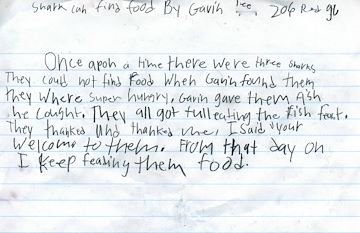 shark can find food By Gavin Lee 206 Red
Once apon a time there were three sharks
They could not find Food When Gavin found them
they where super hungry. Gavin gave them fish
he cought. They all got full eating the fish feast.
They thanked and thanked me, I said your
welcome to them. From that day on
I keep feading them food.